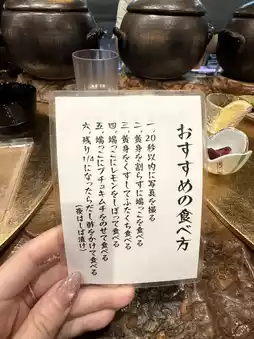 おすすめの食べ方
一、20秒以内に写真を撮る
二、黄身を割らずに端っこを食べる
三、黄身をくずしてふたくち食べる
四、端っこにレモンをしぼって食べる
五、端っこにプチュキムチをのせて食べる
六、残り1/4になったらだし酢をかけて食べる
(夜はしば漬け)